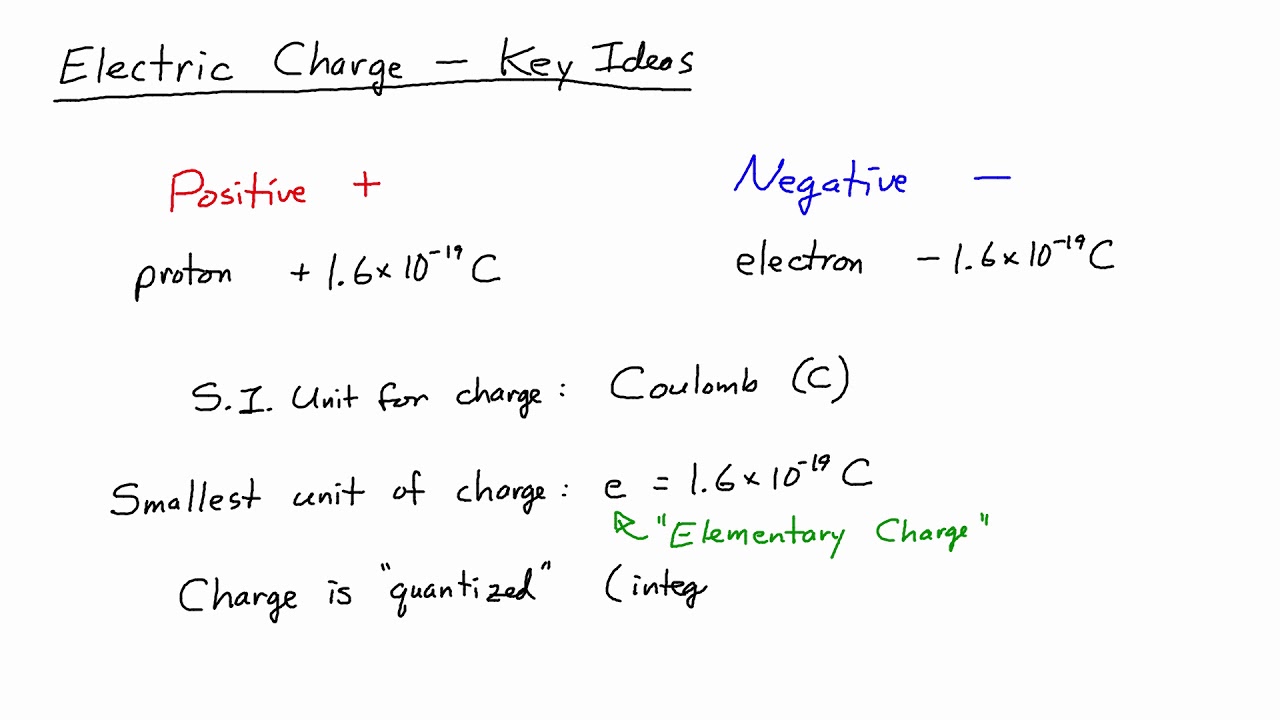 Electric Charge – Key Ideas
Positive +
Negative –
proton + 1.6 × 10⁻¹⁹ C
electron – 1.6 × 10⁻¹⁹ C
S.I. Unit for charge: Coulomb (C)
Smallest unit of charge: e = 1.6 × 10⁻¹⁹ C
"Elementary Charge"
Charge is "quantized" (integ